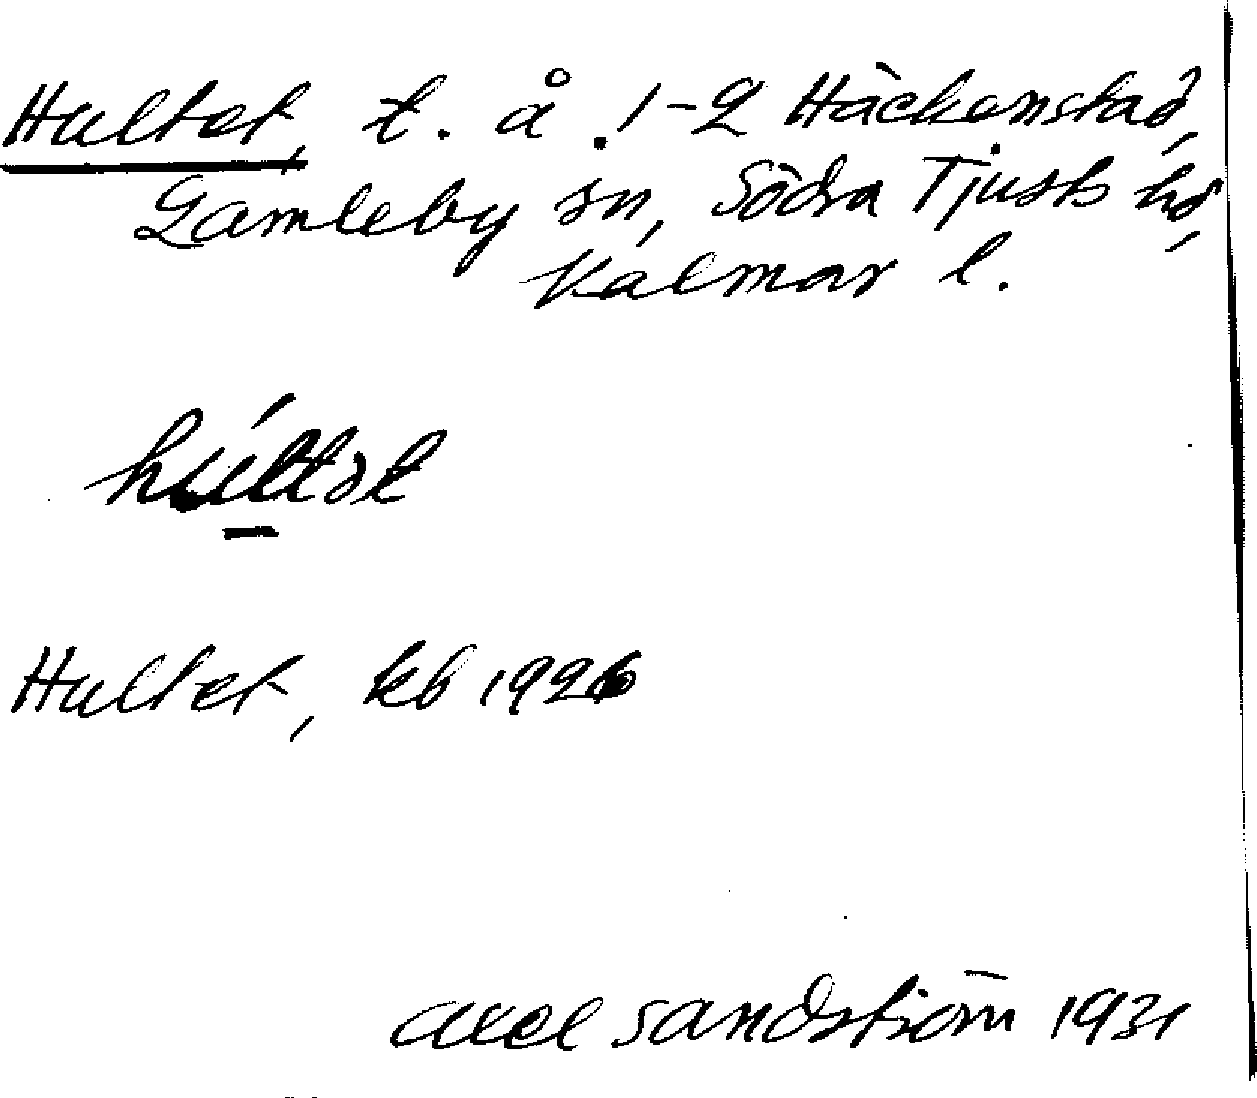 Hultet, t. å. 1-2 Häckenstad,
Gamleby sn, Södra Tjusts hd,
Kalmar l.
húltət
Hultet, kb 1926
Axel Sandström 1931